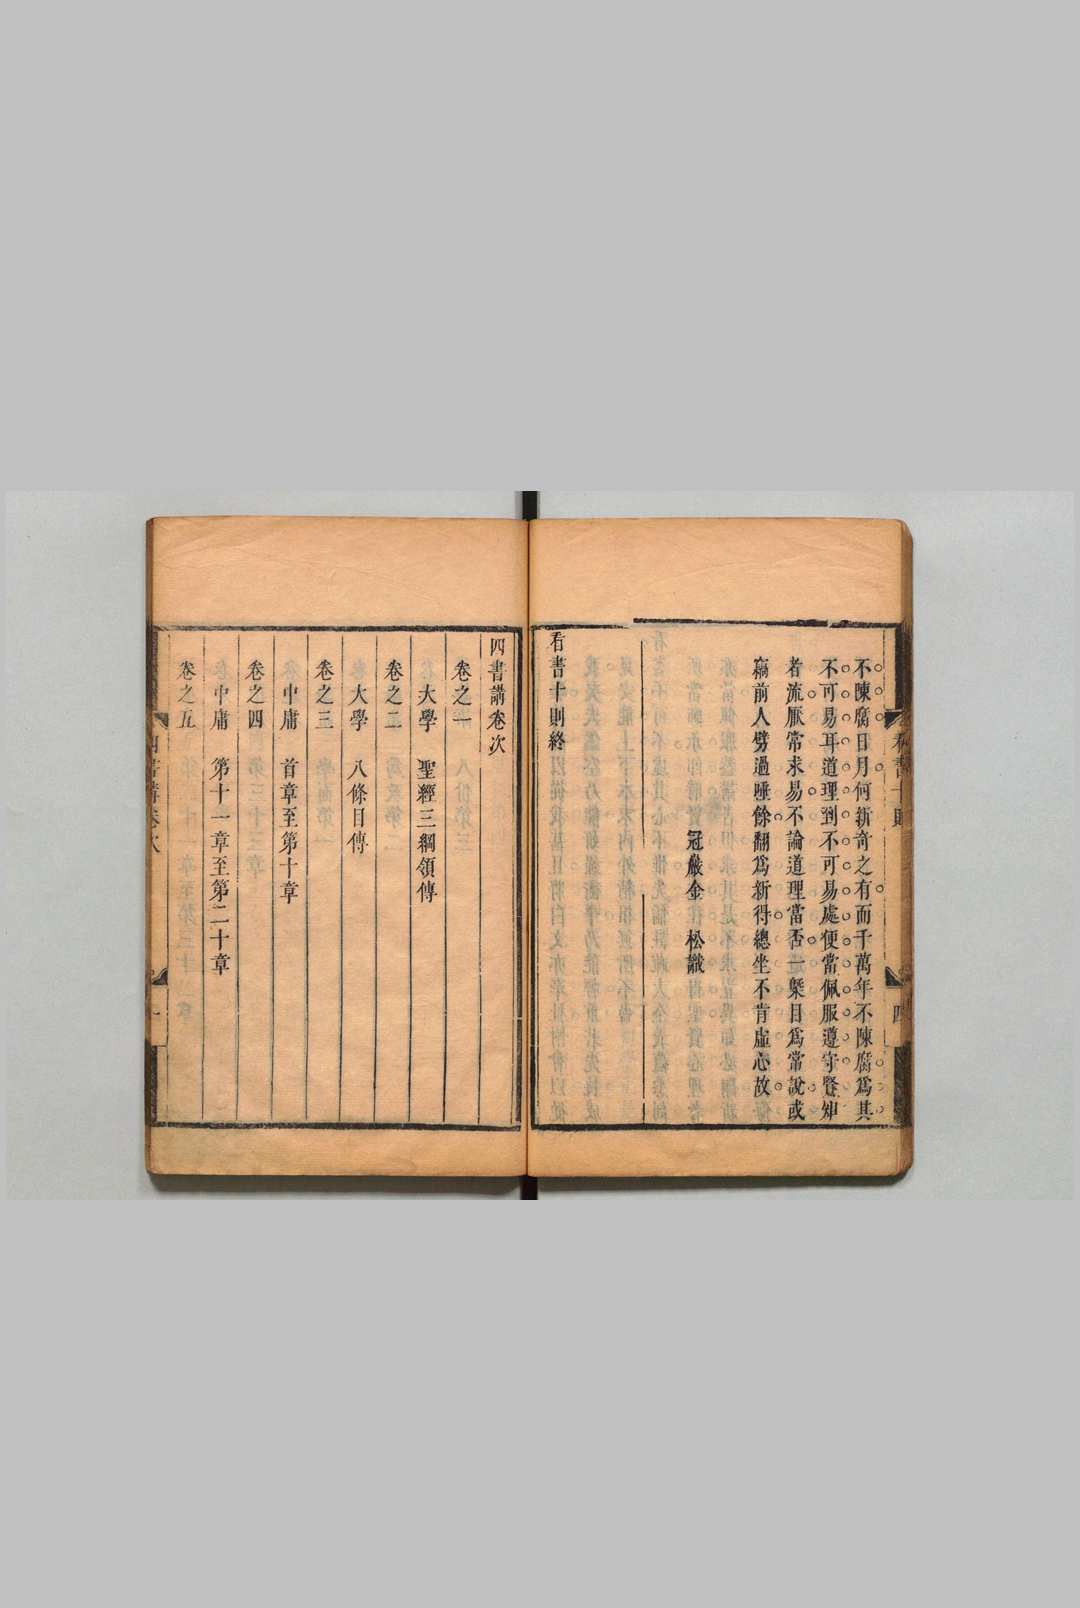 不陳腐日月何新奇之有而千萬年不陳腐爲其
不可易耳道理到不可易處便當佩服遵守賢知
者流厭常求易不論道理當否一槩目爲常說或
竊前人劈過唾餘翻爲新得總坐不肯虛心故
冠巖金 松識
看書十則終
看書十則
四
四書講卷次
卷之一
大學 聖經三綱領傳
卷之二
大學 八條目傳
卷之三
中庸 首章至第十章
卷之四
中庸 第十一章至第二十章
卷之五
四書講卷次
一